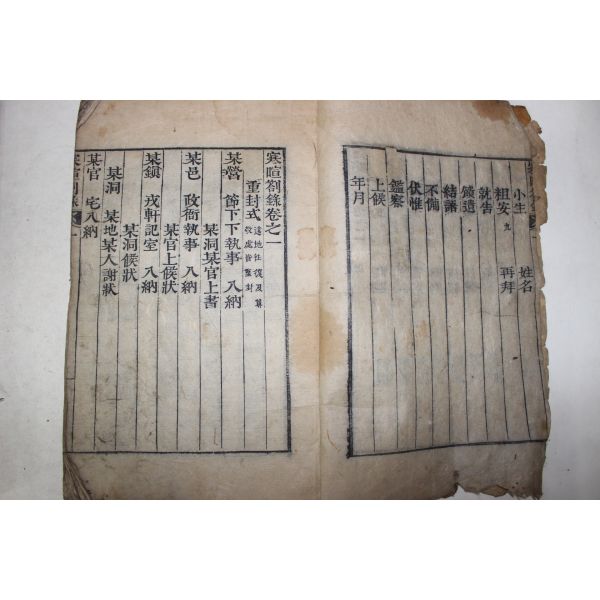 小生 姓名
粗安 九 再拜
就告
餞遺
結語
不備
伏惟
鑑察
上候
年月
寒暄劄錄卷之一
重封式 遠地往復及尊
敬處皆重封
某營 節下下執事 入納
某洞某官上書
某邑 政衙執事 入納
某官上候狀
某鎭 戎軒記室 入納
某洞候狀
某洞 某地某人謝狀
某官 宅入納